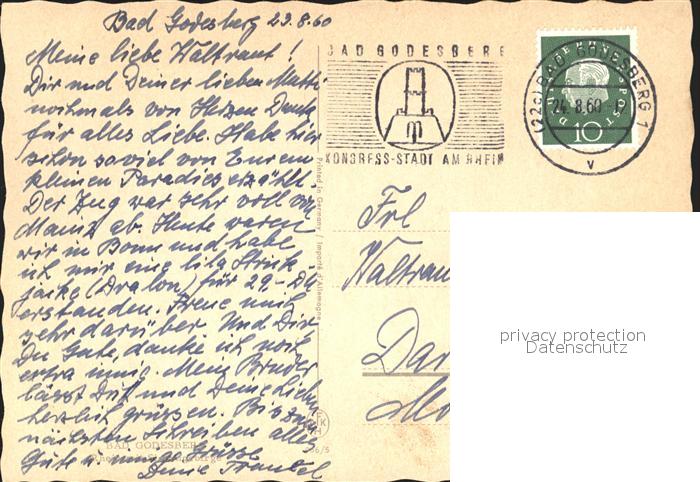 Bad Godesberg 23.8.60
Meine liebe Waltraut!
Dir und Deiner lieben Mutti
nochmals von Herzen Dank
für alles Liebe. Habe hier
schon soviel von Eurem
kleinen Paradies erzählt.
Der Zug war sehr voll von
Mainz ab. Heute waren
wir in Bonn und habe
ich mir eine lila Strick
jacke (Dralon) für 29,- DM
erstanden. Freue mich
sehr darüber. Und Dir
Du Gute, danke ich noch
extra innig. Mein Bruder
lässt Dich und Deine Lieben
herzlich grüssen. Bis zum
nächsten Schreiben alles
Gute u. innige Grüsse
Deine
BAD GODESBERG
BAD GODESBERG
KONGRESS-STADT AM RHEIN
(22c) BAD GODESBERG 1
24.8.60
V
DEUTSCHE BUNDESPOST
10
Printed in Germany / Importé d'Allemagne
Frl
Waltrau
Dar
privacy protection
Datenschutz